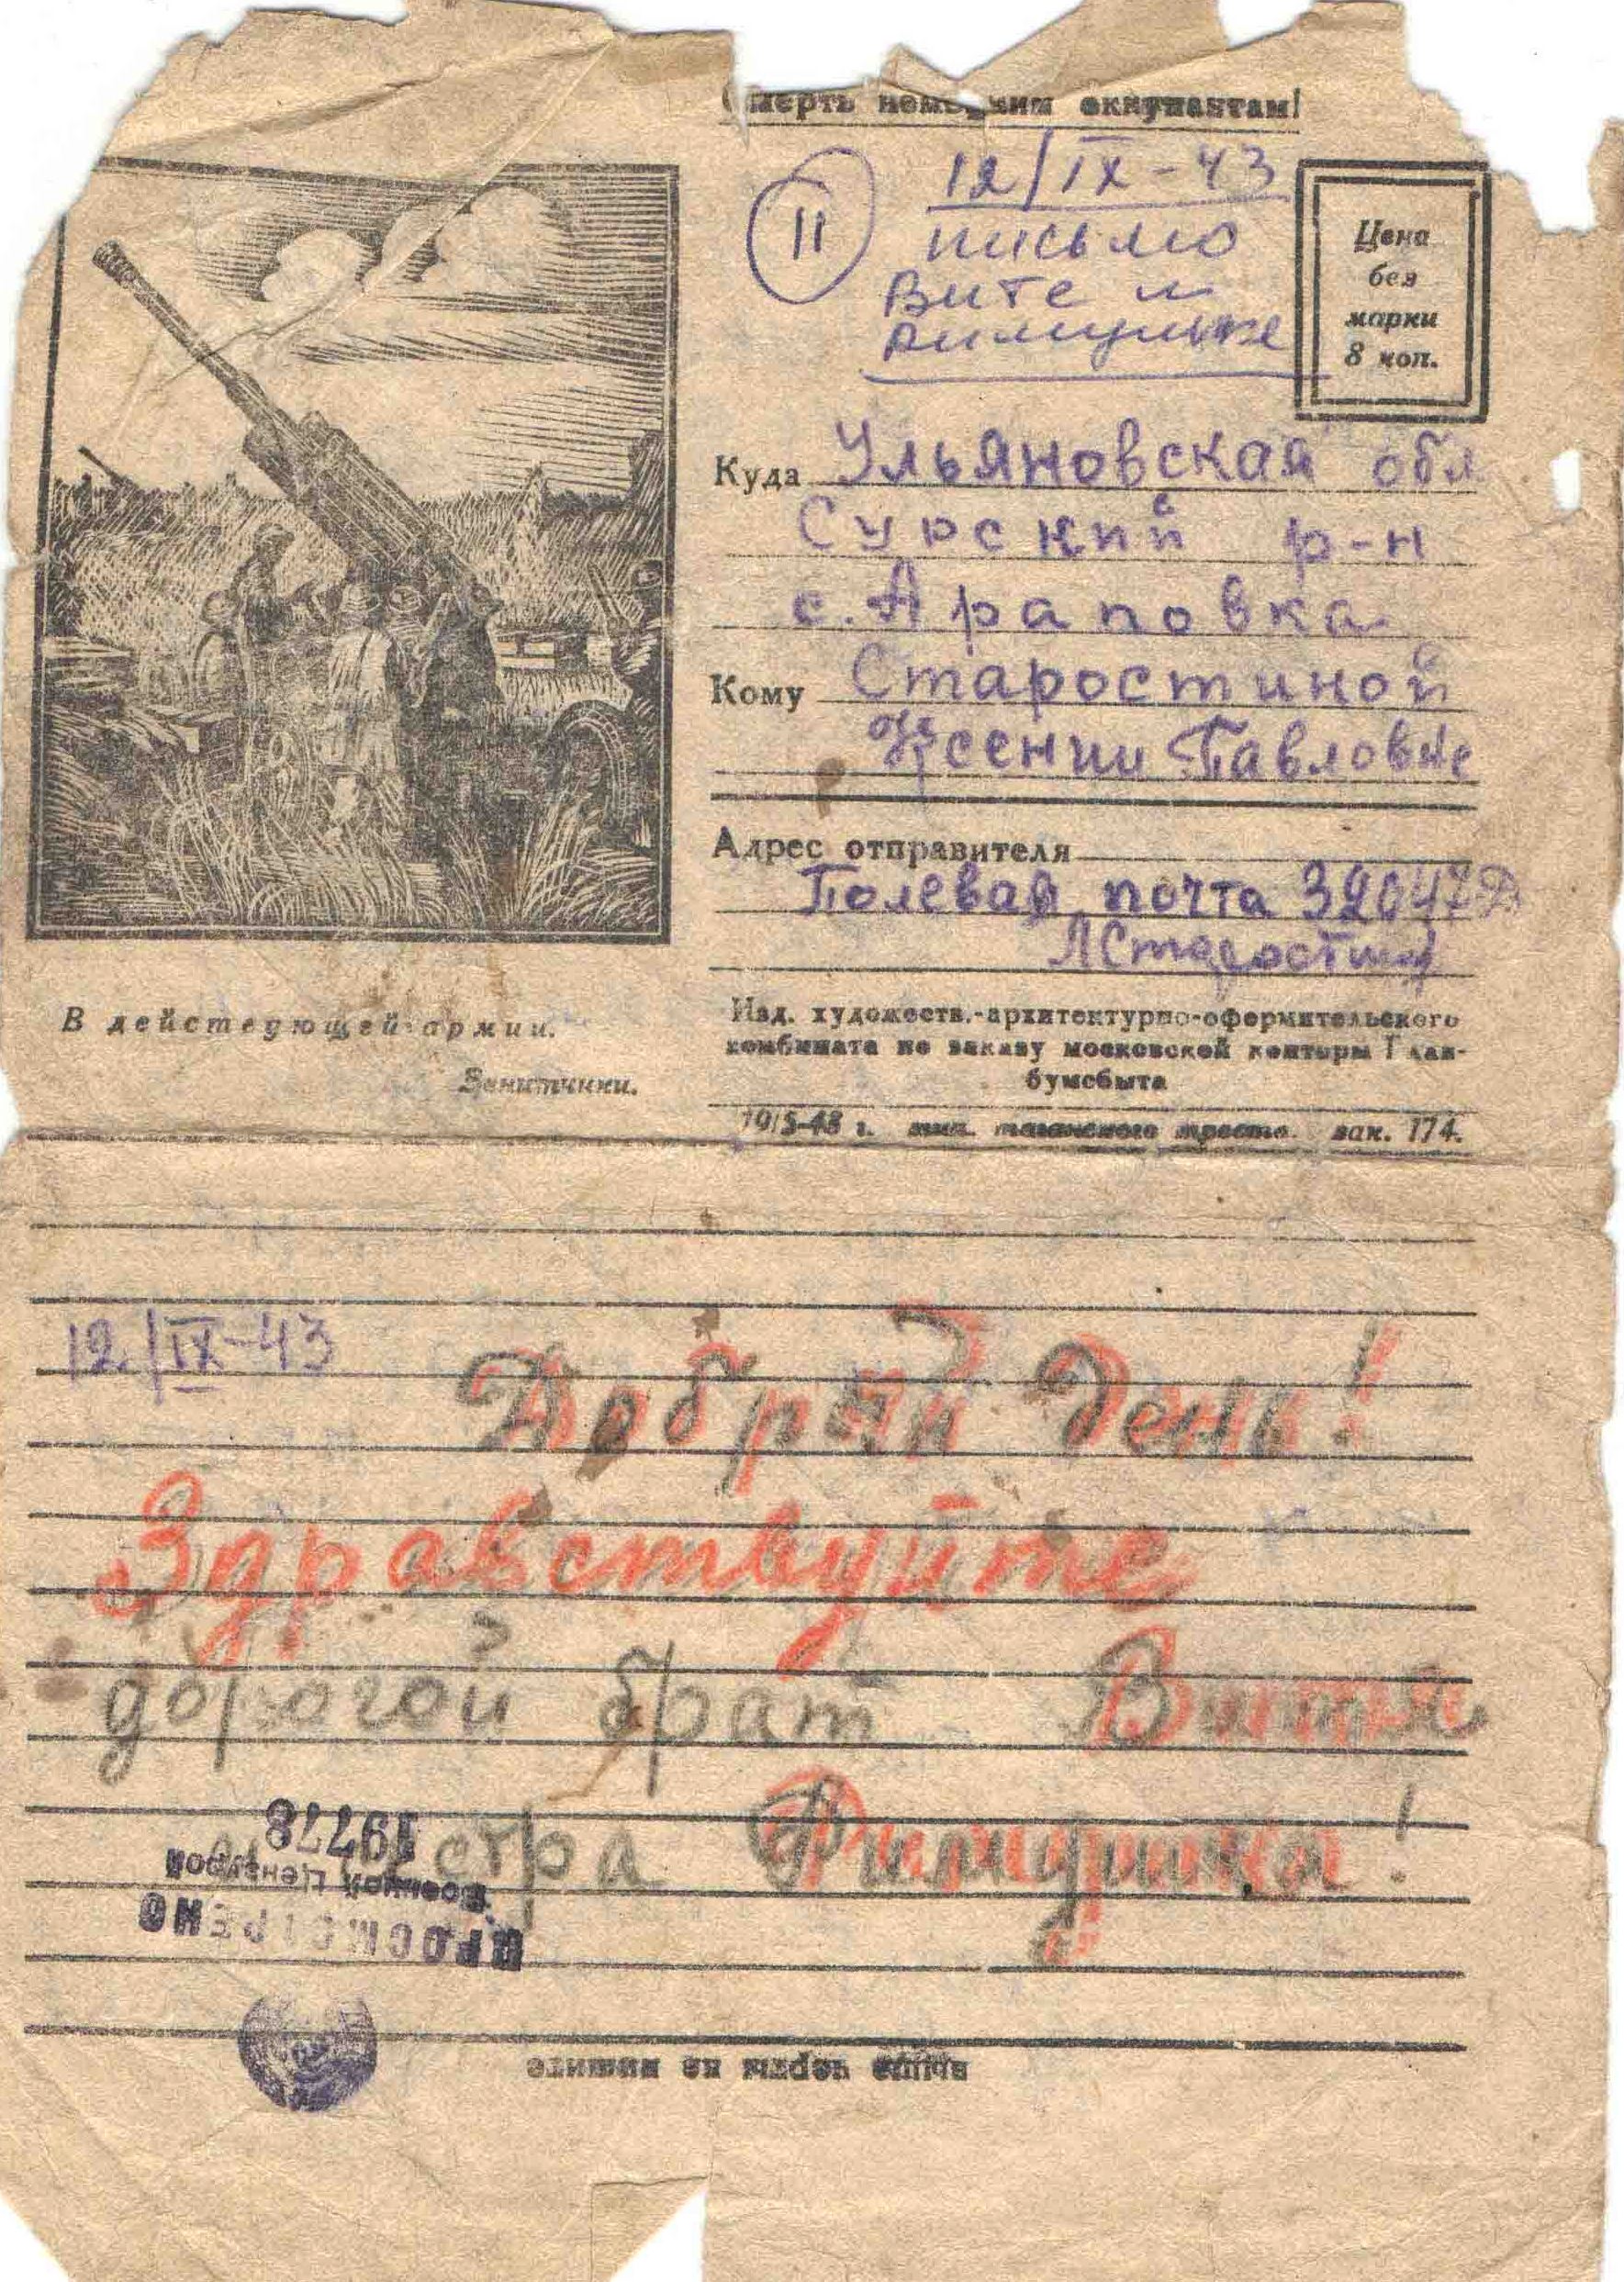 Смерть немецким оккупантам!
12/IX-43
11
письмо
Вите и
Римульке
Цена
без
марки
8 коп.
Куда Ульяновская обл
Сурский р-н
с. Араповка
Кому Старостиной
Ксении Павловне
Адрес отправителя
Полевая почта 39647Д
ЛСтаростин
В действующей армии.
Зенитчики.
Изд. художеств.-архитектурно-оформительского
комбината по заказу московской конторы Глав-
бумсбыта
19/5-43 г. тип. зак. 174.
12/IX-43
Добрый день!
Здравствуйте
дорогой брат Витя
и сестра Римулька!
19778
Военной Цензурой
ПРОСМОТРЕНО
ниже черты не пишите